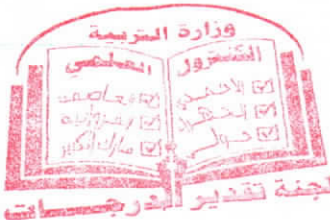 وزارة التربية
الكنترول العلمي
الأحمدي
العاصمة
الجهراء
الفروانية
حولي
مبارك الكبير
لجنة تقدير الدرجات